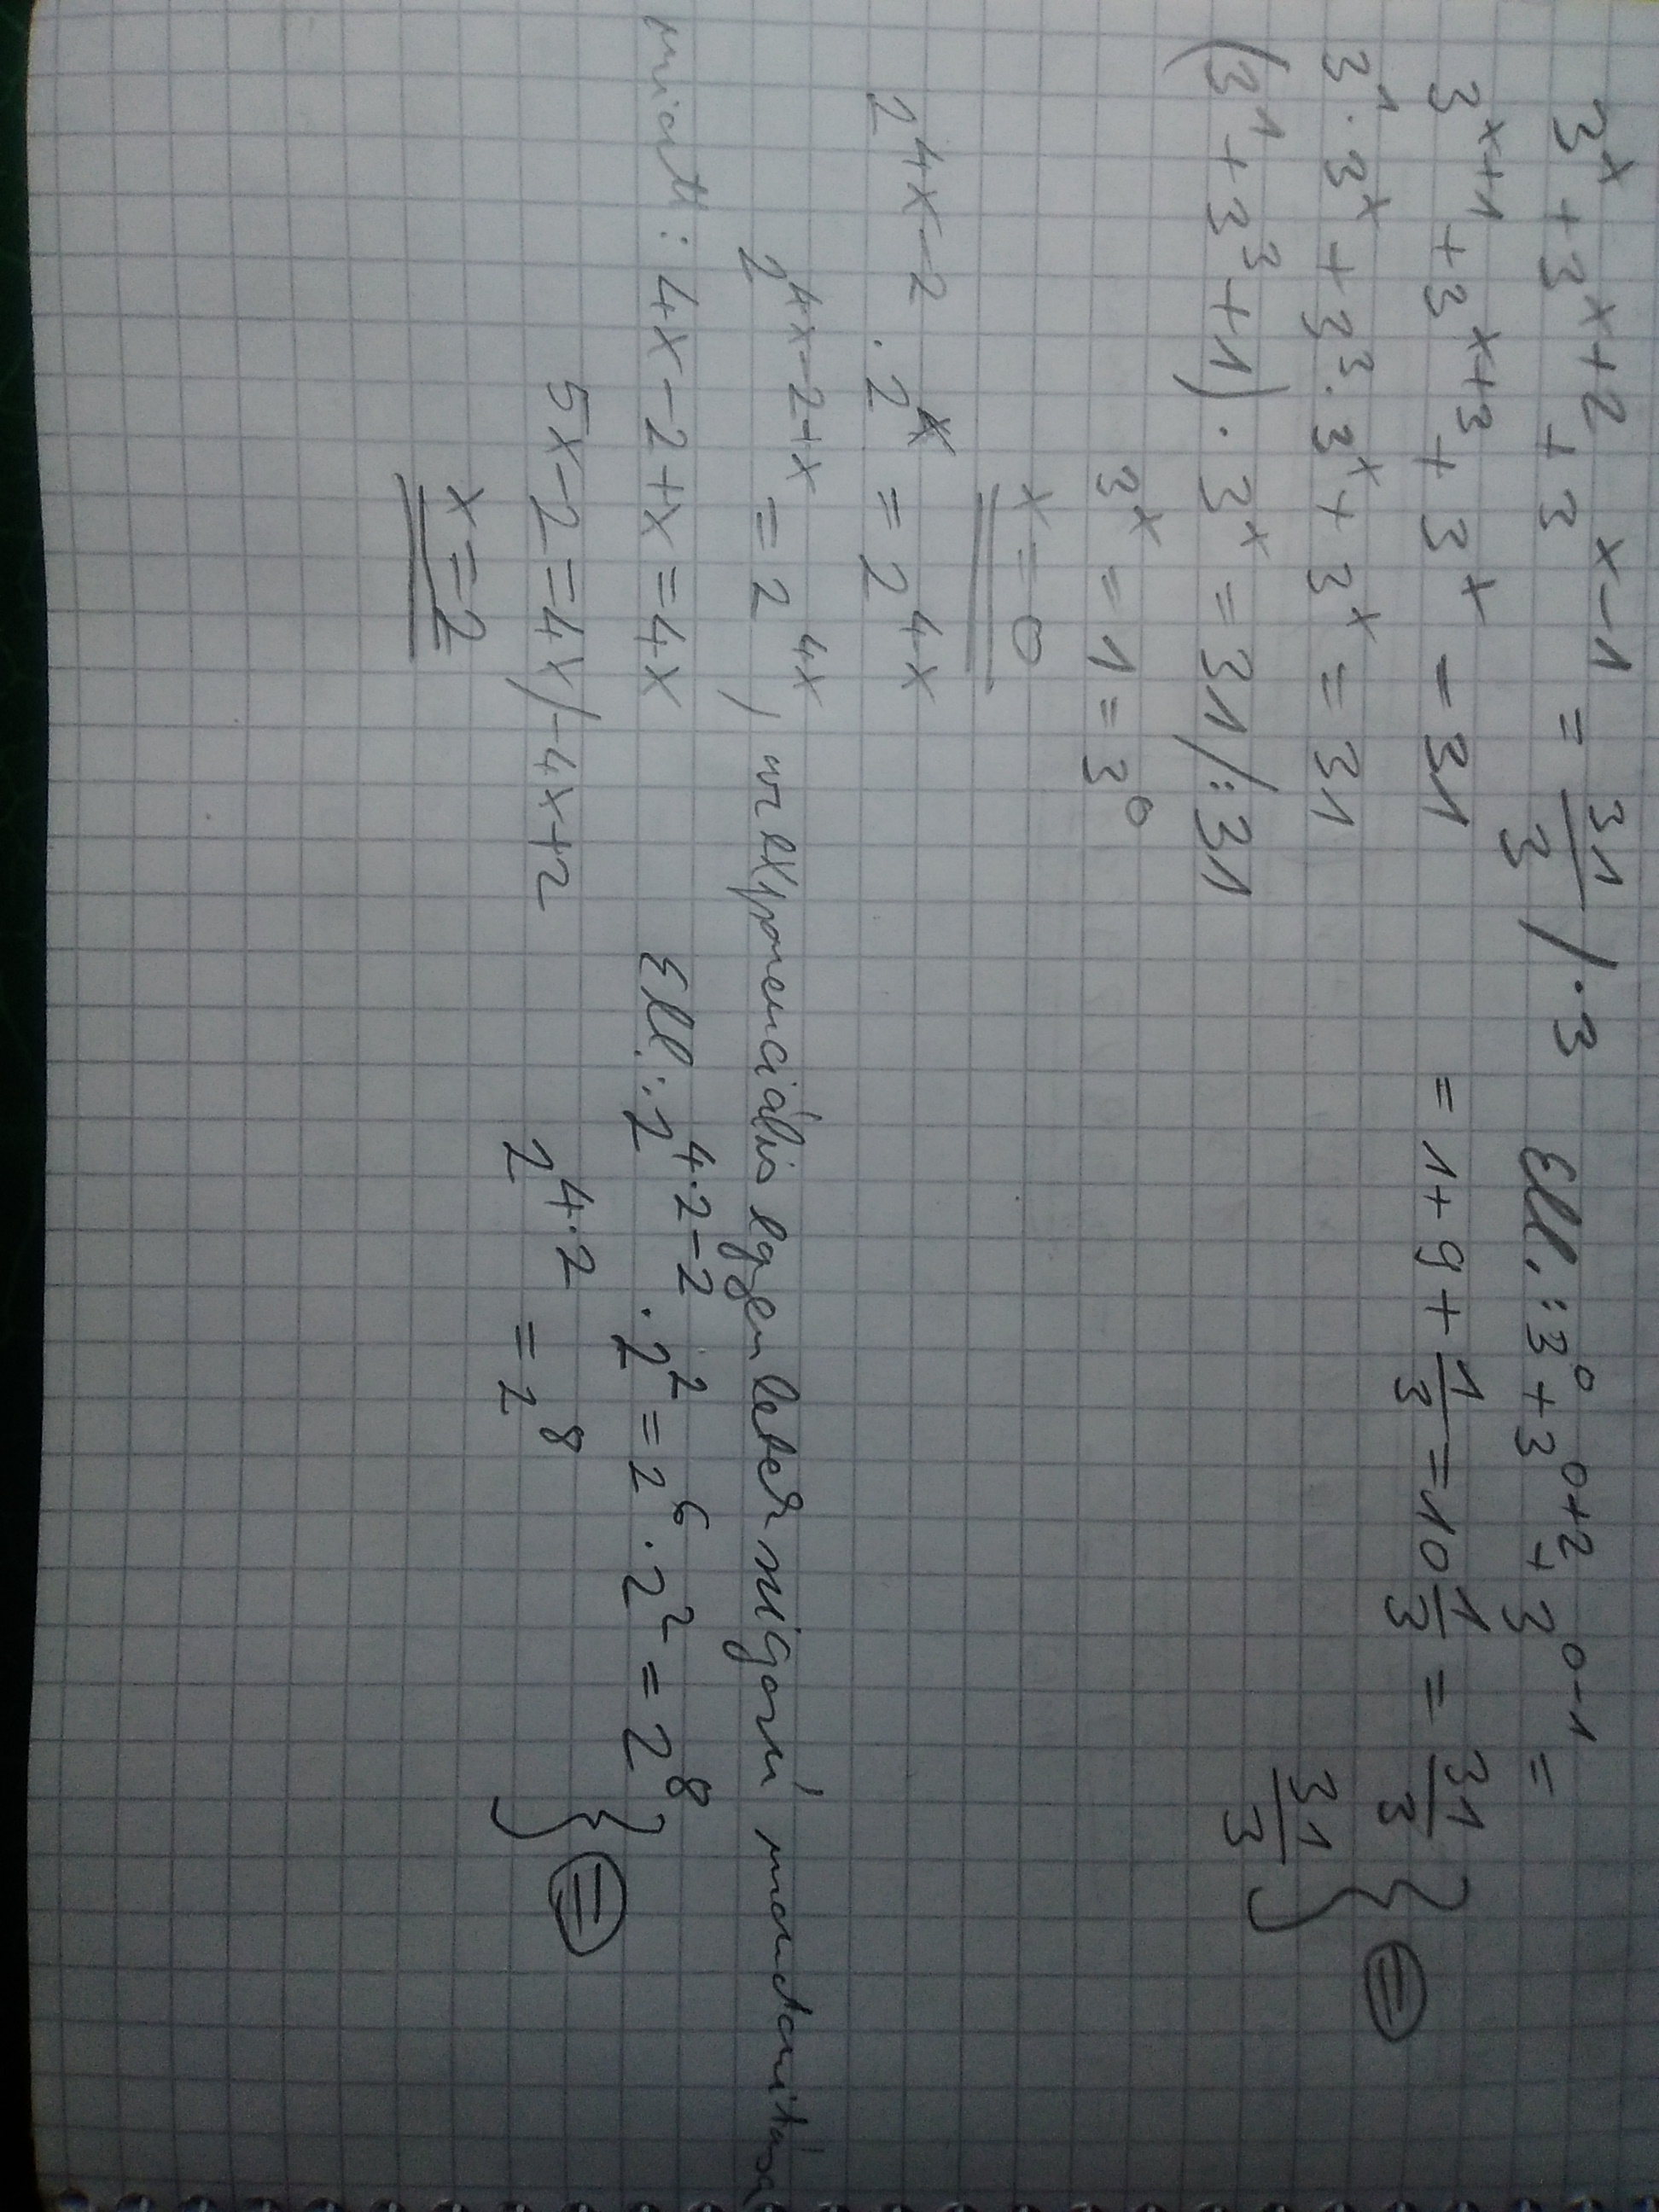 3^x + 3^{x+2} + 3^{x-1} = \frac{31}{3} /·3 Ell.: 3^0 + 3^{0+2} + 3^{0-1} =
3^{x+1} + 3^{x+3} + 3^x = 31 = 1 + 9 + \frac{1}{3} = 10\frac{1}{3} = \frac{31}{3}
3^1 · 3^x + 3^3 · 3^x + 3^x = 31 } =
(3^1 + 3^3 + 1) · 3^x = 31 /:31 \frac{31}{3}
3^x = 1 = 3^0
x = 0
2^{4x-2} · 2^x = 2^{4x}
2^{4x-2+x} = 2^{4x}, az exponenciális egyenletek szigorú monotonitása
miatt: 4x-2+x = 4x Ell.: 2^{4·2-2} · 2^2 = 2^6 · 2^2 = 2^8
5x-2 = 4x /-4x+2 2^{4·2} = 2^8 } =
x = 2